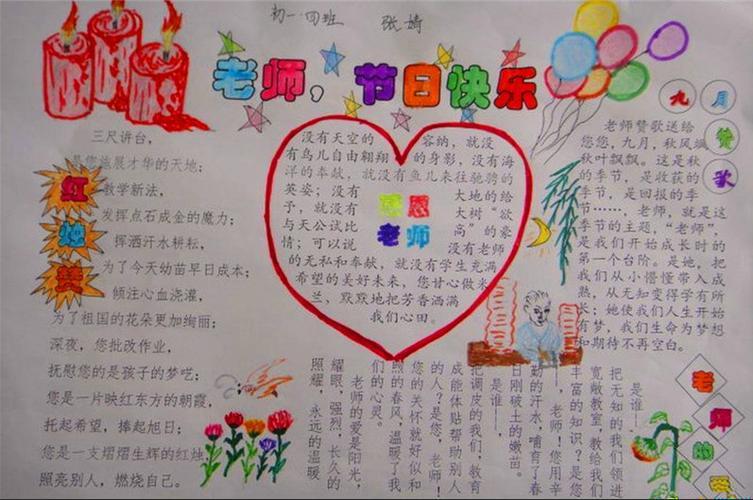 初一·四班 张婧
老师，节日快乐
红
烛
赞
三尺讲台，
是您施展才华的天地；
教学新法，
发挥点石成金的魔力；
挥洒汗水耕耘，
为了今天幼苗早日成本；
倾注心血浇灌，
为了祖国的花朵更加绚丽；
深夜，您批改作业，
抚慰您的是孩子的梦呓；
您是一片映红东方的朝霞，
托起希望，捧起旭日；
您是一支熠熠生辉的红烛
照亮别人，燃烧自己。
没有天空的容纳，就没
有鸟儿自由翱翔的身影，没有海
洋的奉献，就没有鱼儿来往驰骋的
英姿；没有大地的给
予，就没有大树“欲
与天公试比高”的豪
情；可以说没有老师
的无私和奉献，就没有学生充满
希望的美好未来，您甘心做米
兰，默默地把芳香洒满
我们心田。
感恩
老师
九月赞歌
老师赞歌送给
您您，九月，秋风飒
秋叶飘飘。这是秋
的季节，是收获的
季节，是回报的季
节……，老师，就是这
季节的主题，“老师”，
是我们开始成长时的
第一个台阶。是她，把
我们从小懵懂带入成
熟，从无知变得学有所
长；她使我们人生开始
有梦，我们生命为梦想
和期待不再空白。
是谁——
把无知的我们领进
宽敞教室，教给我们
丰富的知识？是您
！老师！您用辛
勤的汗水，哺育了春
日刚破土的嫩苗。
是谁——，
把调皮的我们，教育
成能体贴帮助别人
的人？是您，老师！
您的关怀就好似和
煦的春风，温暖了我
们的心灵。
老师的爱是阳光，
耀眼，强烈，长久的
照耀，永远的温暖
老师的